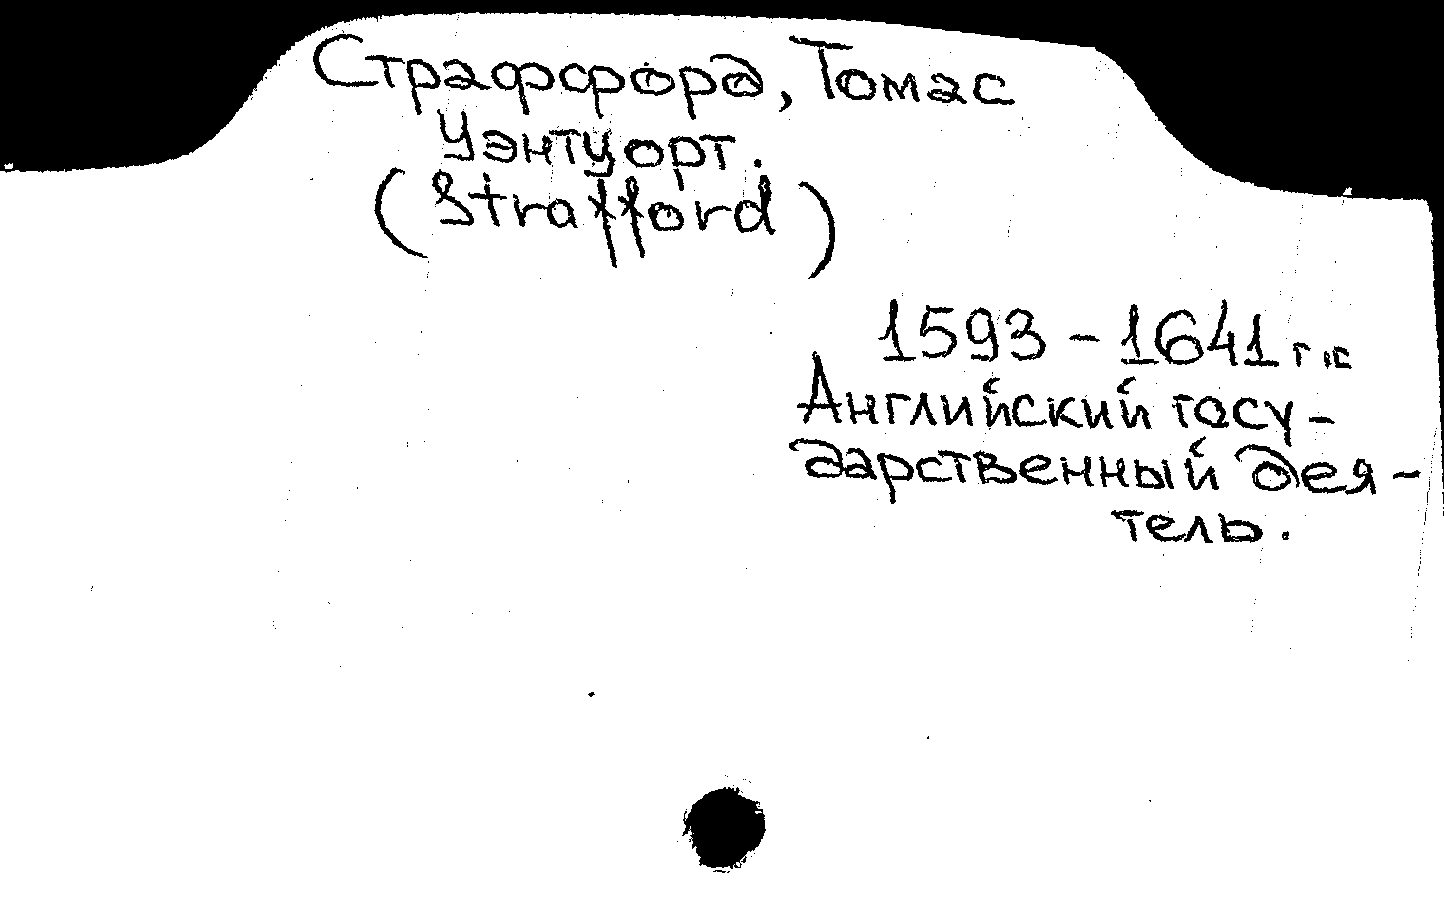 Страффорд, Томас
Уэнтуорт.
(Strafford)
1593-1641 гг.
Английский госу-
дарственный дея-
тель.